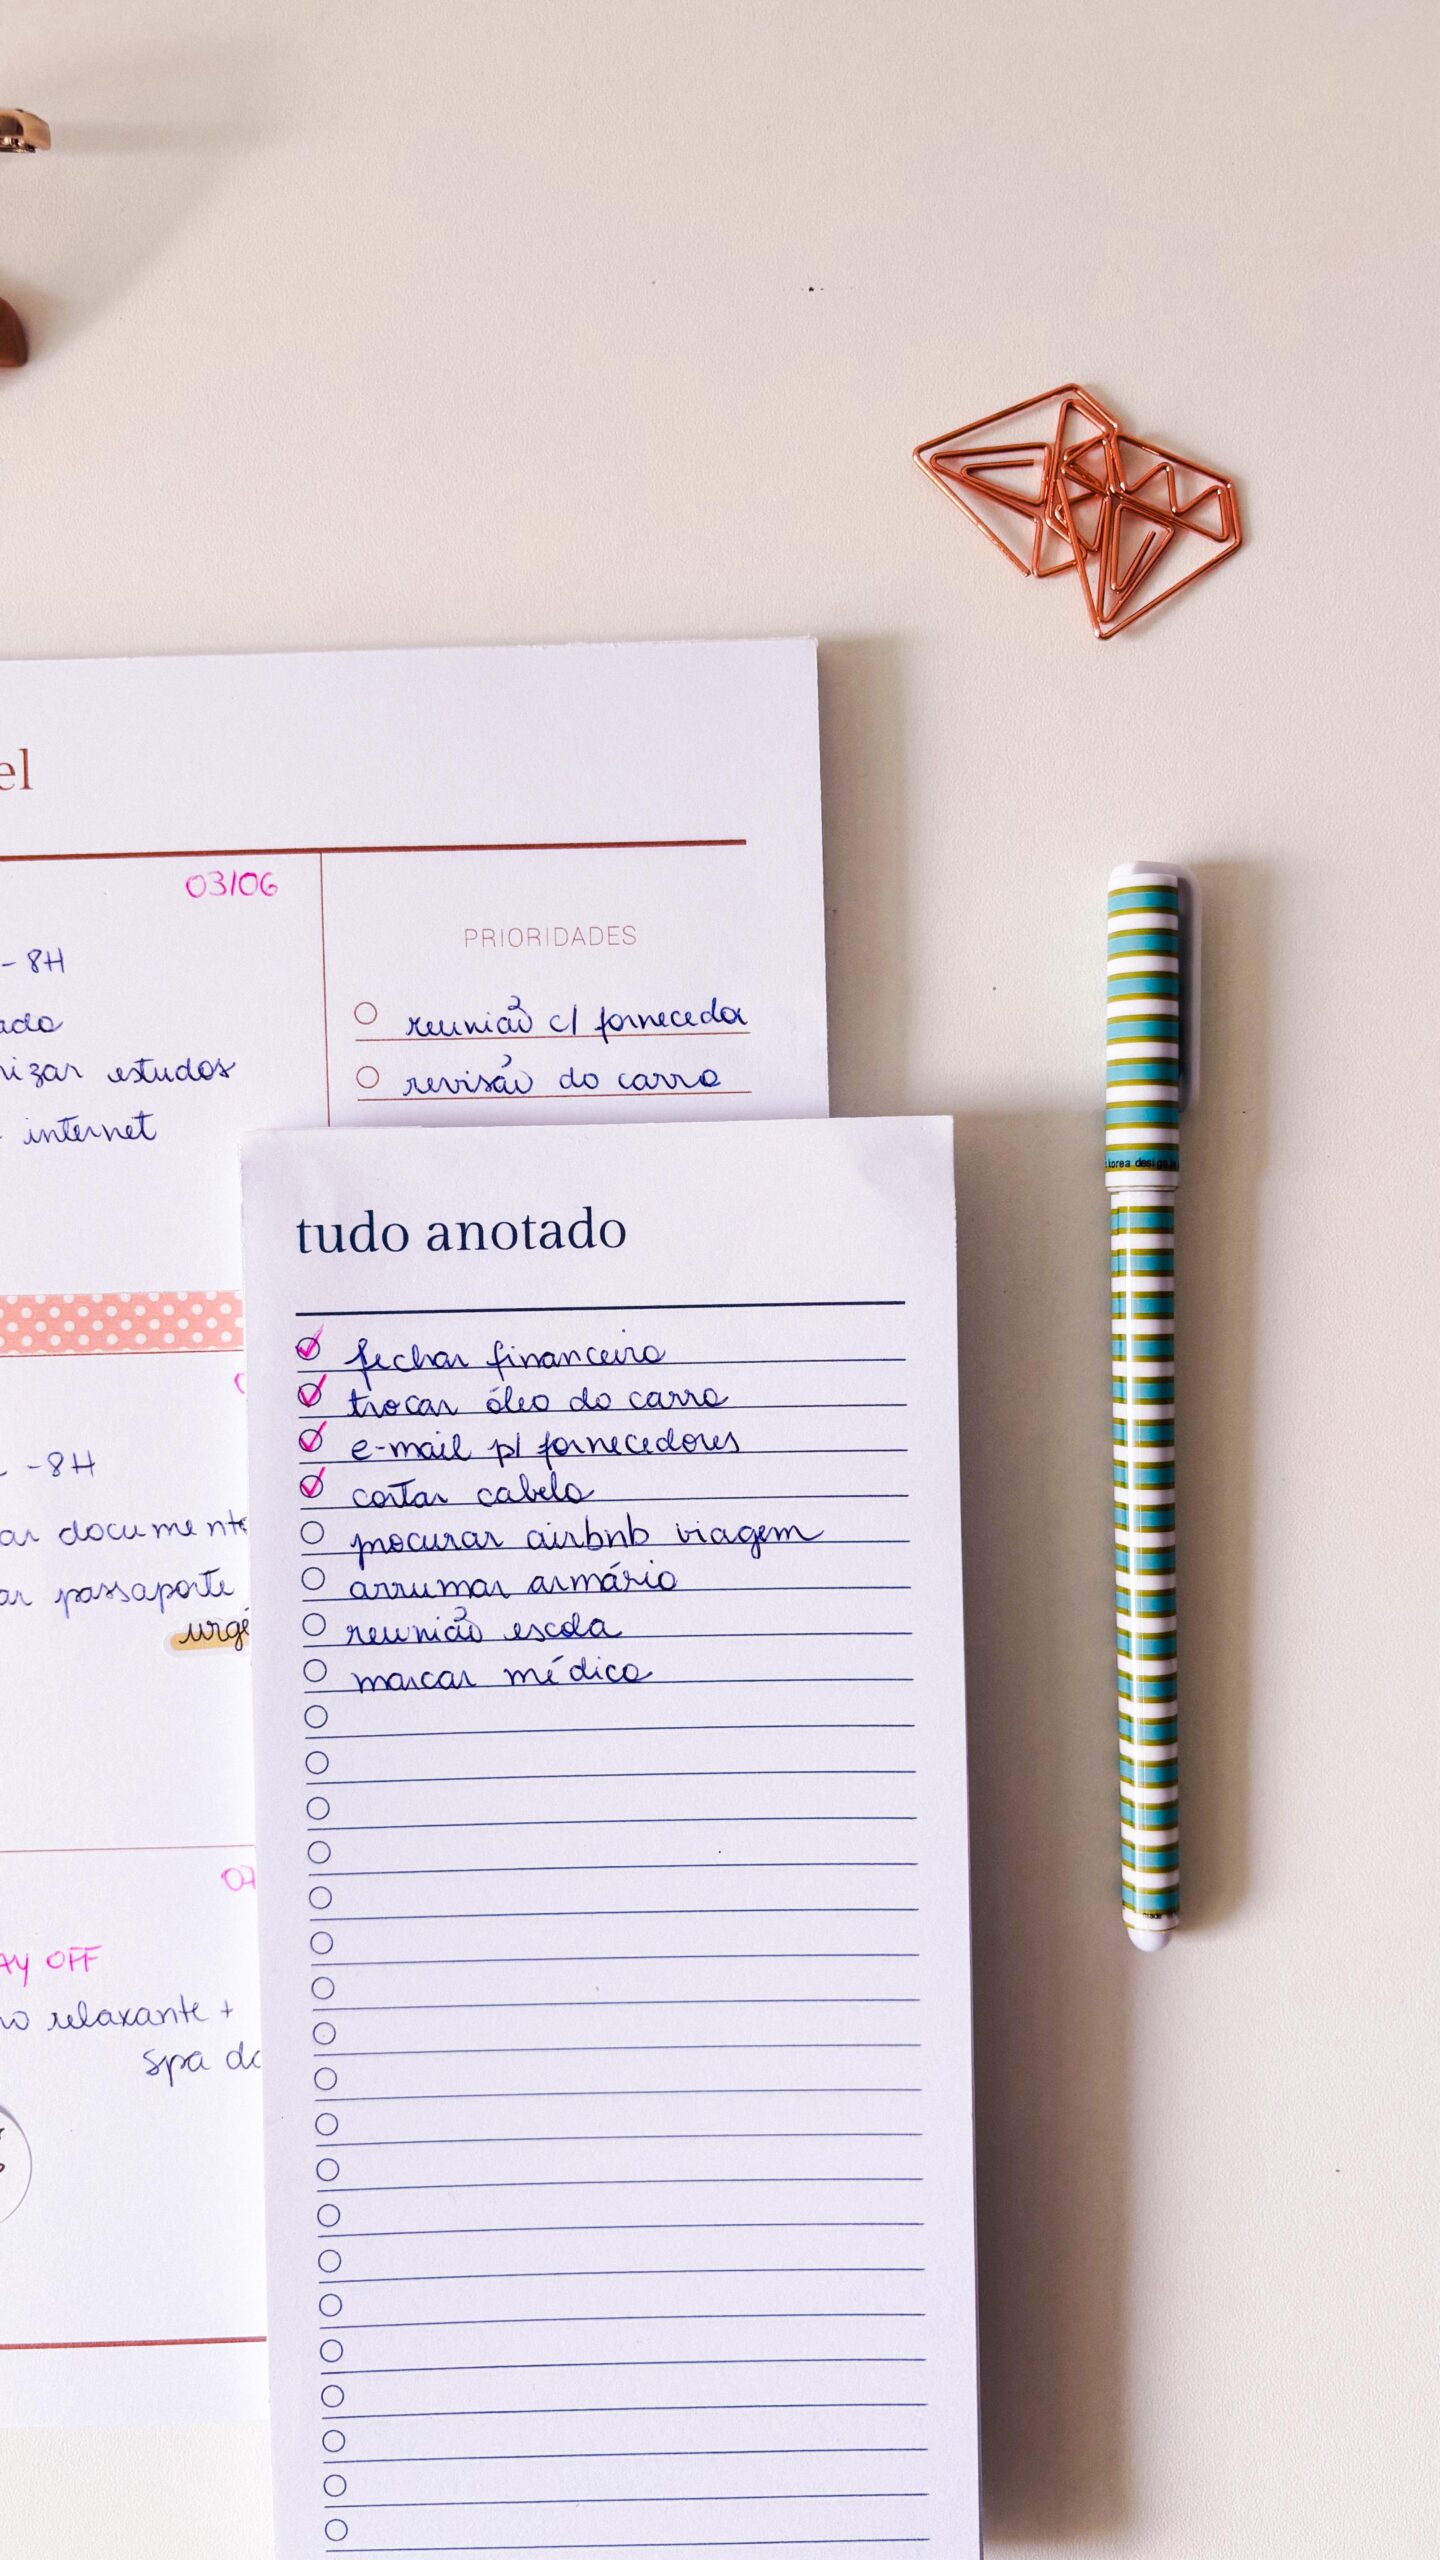 el
03/06
- 8H
ado
nizar estudos
internet
PRIORIDADES
reunião c/ fornecedor
revisão do carro
- 8H
ar documente
ar passaporte
urgê
07
AY OFF
relaxante +
spa do
tudo anotado
fechar financeiro
trocar óleo do carro
e-mail p/ fornecedores
cortar cabelo
procurar airbnb viagem
arrumar armário
reunião escola
marcar médico
korea design
made